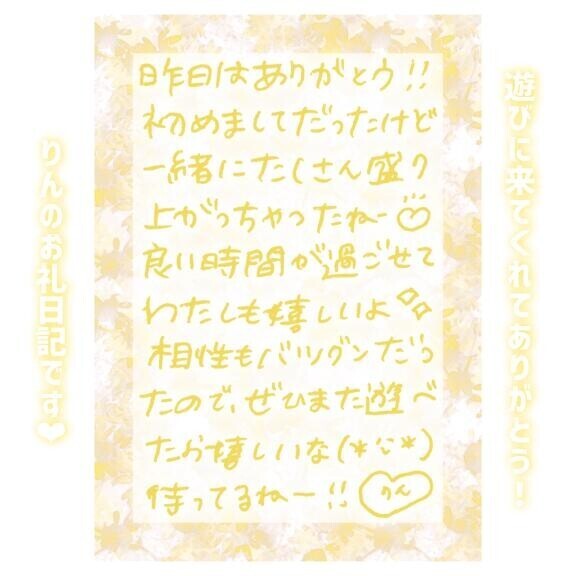 遊びに来てくれてありがとう!
昨日はありがとう!!
初めましてだったけど
一緒にたくさん盛り
上がっちゃったねー♡
良い時間が過ごせて
わたしも嬉しいよ
相性もバツグンだっ
たので、ぜひまた遊べ
たら嬉しいな(*ˊᵕˋ*)
待ってるねー!! りん
りんのお礼日記です❤